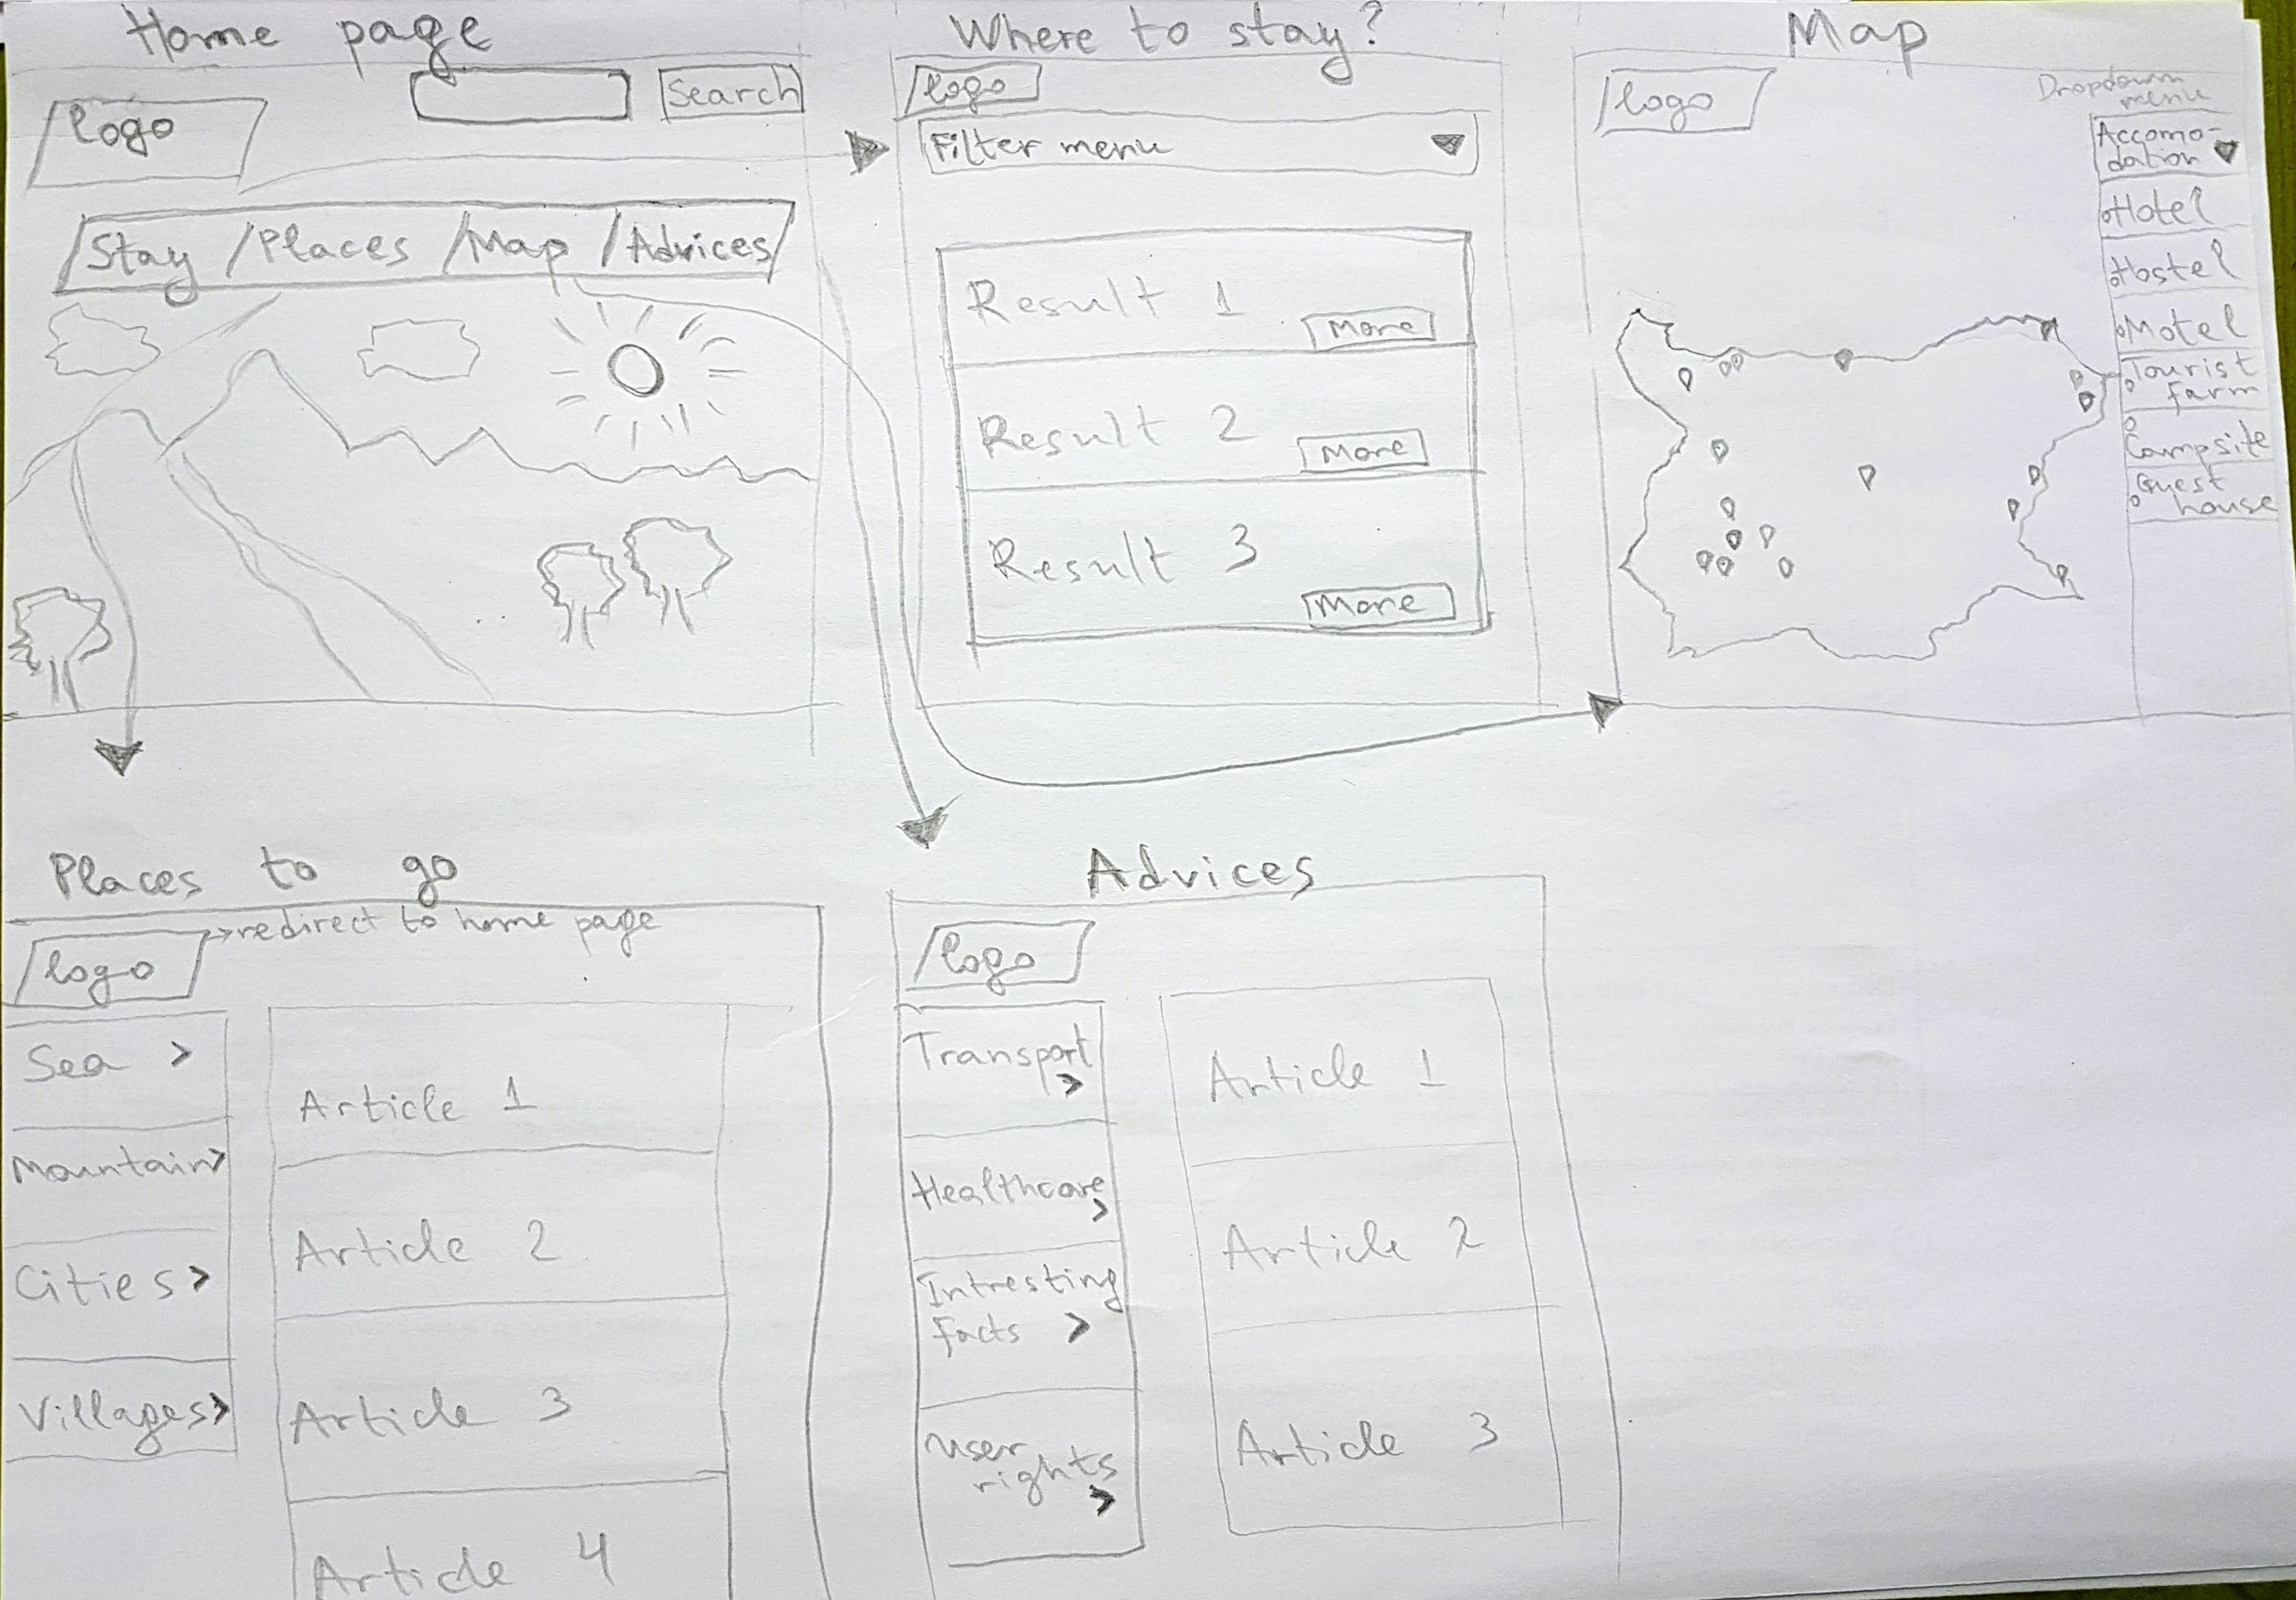 Home page
Search
logo
Stay / Places / Map / Advices
Where to stay?
logo
Filter menu
Result 1
More
Result 2
More
Result 3
More
Map
logo
Dropdown
menu
Accomo-
dation
Hotel
Hostel
Motel
Tourist
farm
Campsite
Guest
house
Places to go
redirect to home page
logo
Sea >
Mountain>
Cities>
Villages>
Article 1
Article 2
Article 3
Article 4
Advices
logo
Transport
>
Healthcare
>
Intresting
facts >
user
rights
>
Article 1
Article 2
Article 3